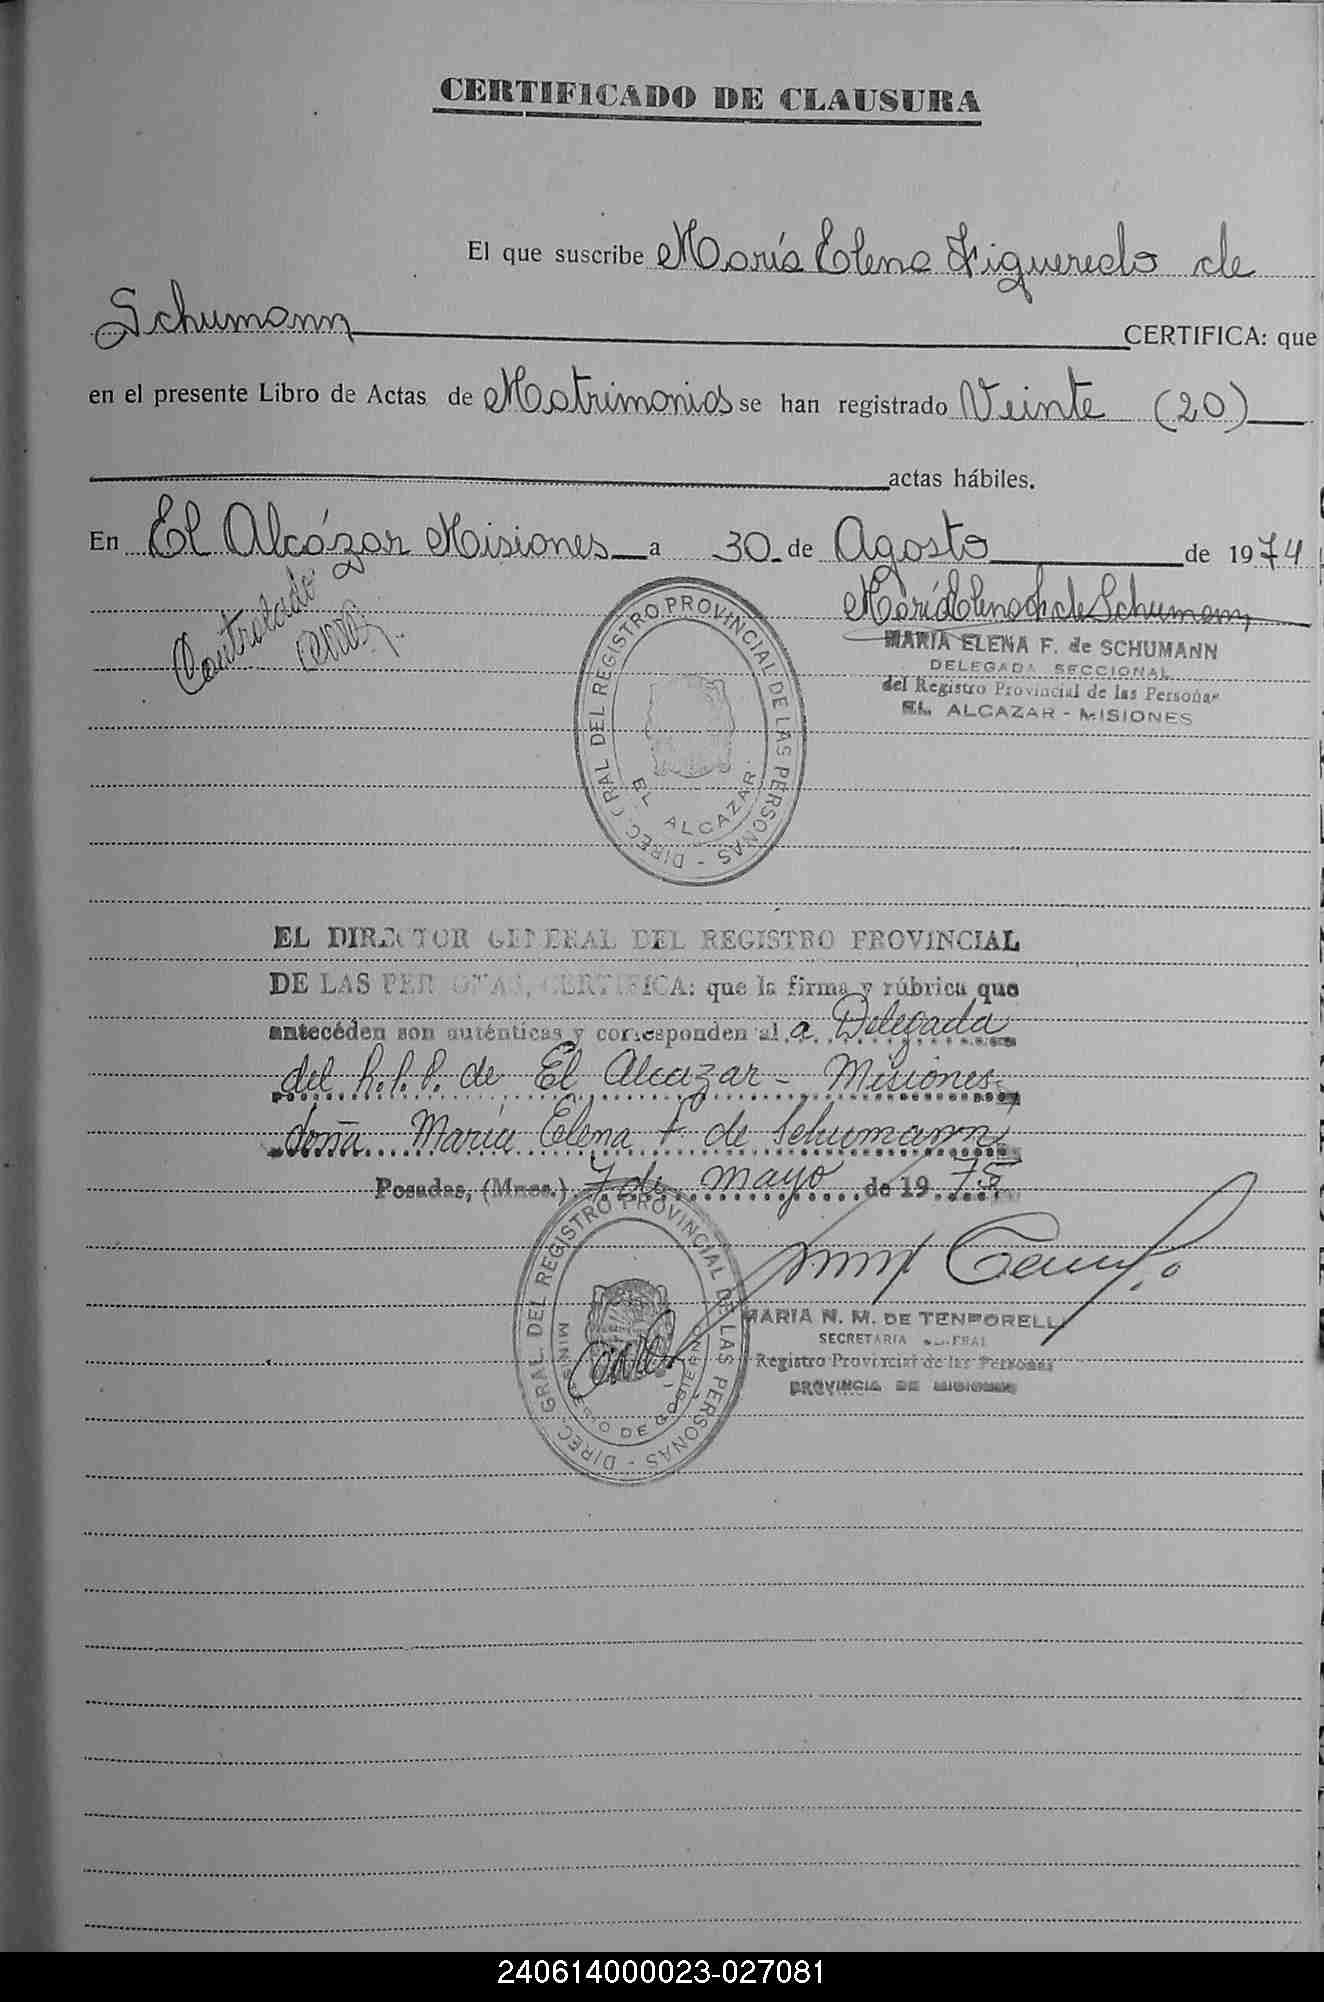 CERTIFICADO DE CLAUSURA
El que suscribe María Elena Figueredo de
Schumann CERTIFICA: que
en el presente Libro de Actas de Matrimonios se han registrado Veinte (20)
actas hábiles.
En El Alcázar Misiones a 30 de Agosto de 1974
Controlado
María Elena F. de Schumann
MARIA ELENA F. de SCHUMANN
DELEGADA SECCIONAL
del Registro Provincial de las Personas
EL ALCAZAR - MISIONES
DIREC. GRAL. DEL REGISTRO PROVINCIAL DE LAS PERSONAS -
EL ALCAZAR
EL DIRECTOR GENERAL DEL REGISTRO PROVINCIAL
DE LAS PERSONAS, CERTIFICA: que la firma y rúbrica que
antecéden son auténticas y corresponden al a Delegada
del R.P.P. de El Alcazar - Misiones
doña María Elena F. de Schumann
Posadas, (Mnes.) 7 de mayo de 1975
DIREC. GRAL. DEL REGISTRO PROVINCIAL DE LAS PERSONAS -
MINISTERIO DE GOBIERNO
MARIA N. M. DE TEMPORELLI
SECRETARIA GENERAL
Registro Provincial de las Personas
PROVINCIA DE MISIONES
240614000023-027081